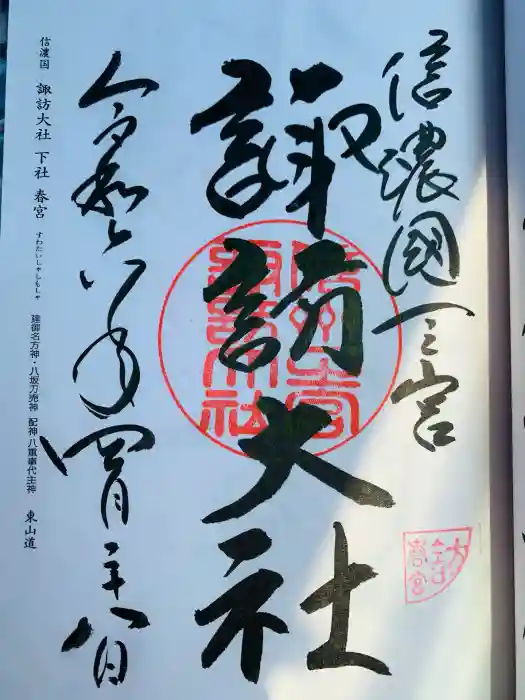 信濃國一之宮
諏訪大社
諏訪大社
春宮
令和六年四月二十八日
信濃国 諏訪大社 下社 春宮 すわたいしゃしもしゃ 建御名方神・八坂刀売神 配神 八重事代主神 東山道